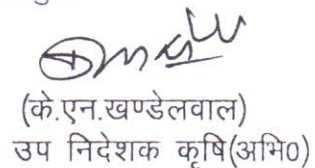 (के.एन.खण्डेलवाल)
उप निदेशक कृषि(अभि0)